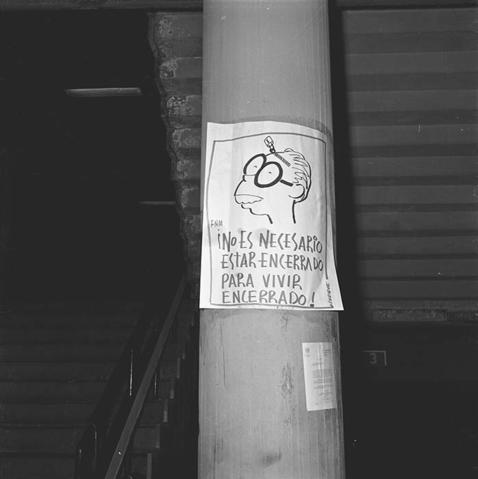 FNM
¡NO ES NECESARIO
ESTAR ENCERRADO
PARA VIVIR
ENCERRADO!
3